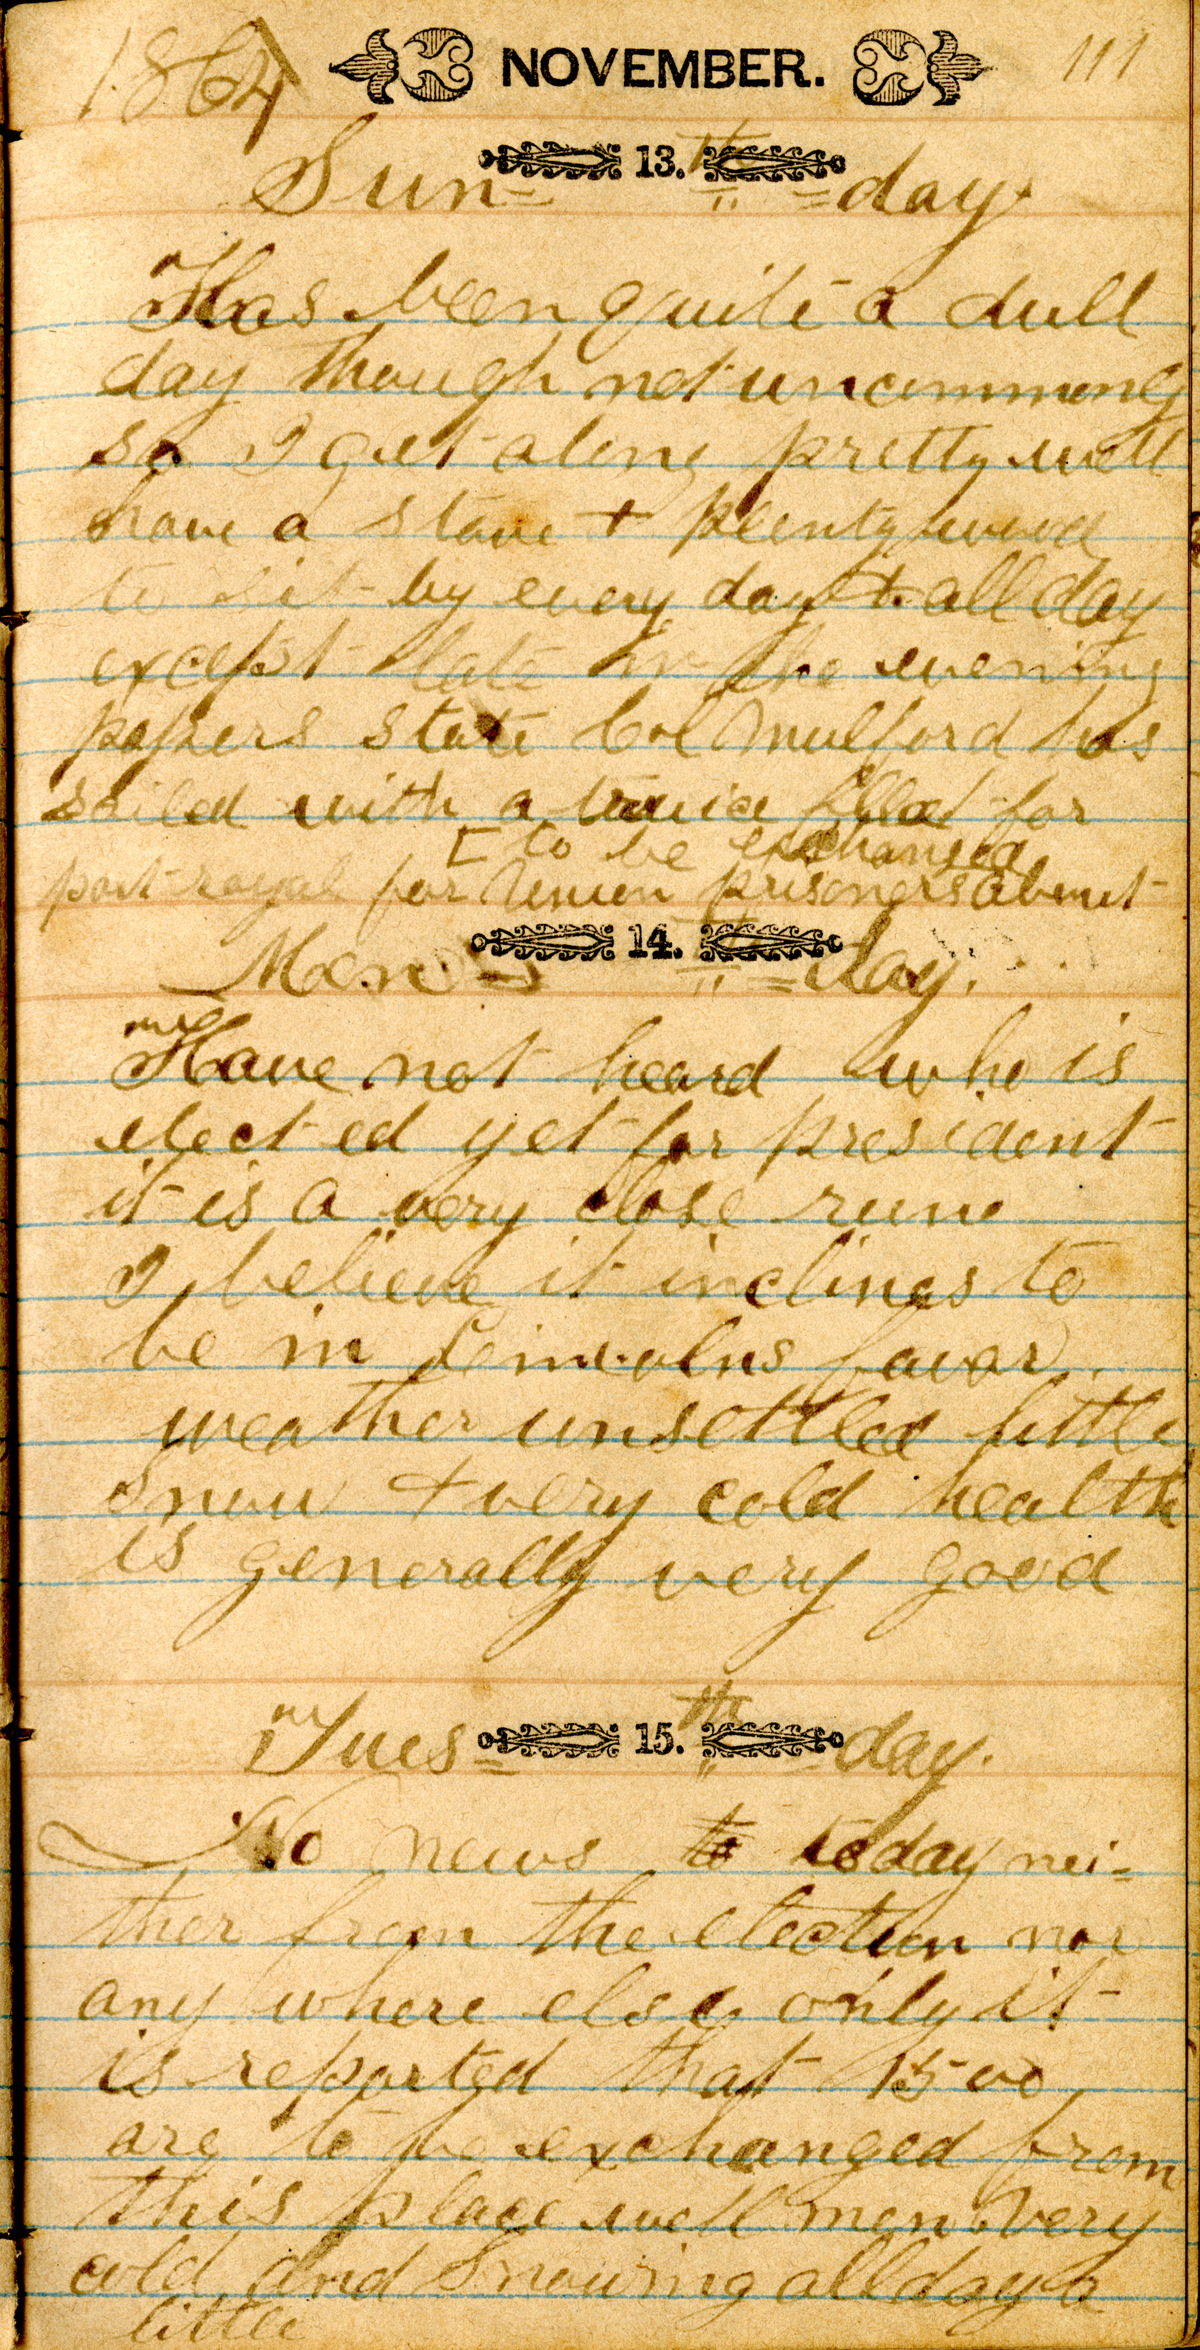 1864 NOVEMBER. 111
Sun= 13.th =day.
Has been quite a dull
day though not uncommonly
so I get along pretty well
have a stove + plenty wood
to sit by every day + all day
except late in the evening
papers state Col Mulford has
sailed with a truce flled for
[ to be exchanged
port royal for Union prisoners about
Mon= 14.th =day.
Have not heard who is
elected yet for president
it is a very close rune
I believe it inclines to
be in Lincolns favor.
weather unsettled little
snow + very cold health
is generally very good
Tues= 15.th =day.
No news to today nei=
ther from the election nor
any where else only it
is reported that 1500
are to be exchanged from
this place well men very
cold and snowing all day a
little